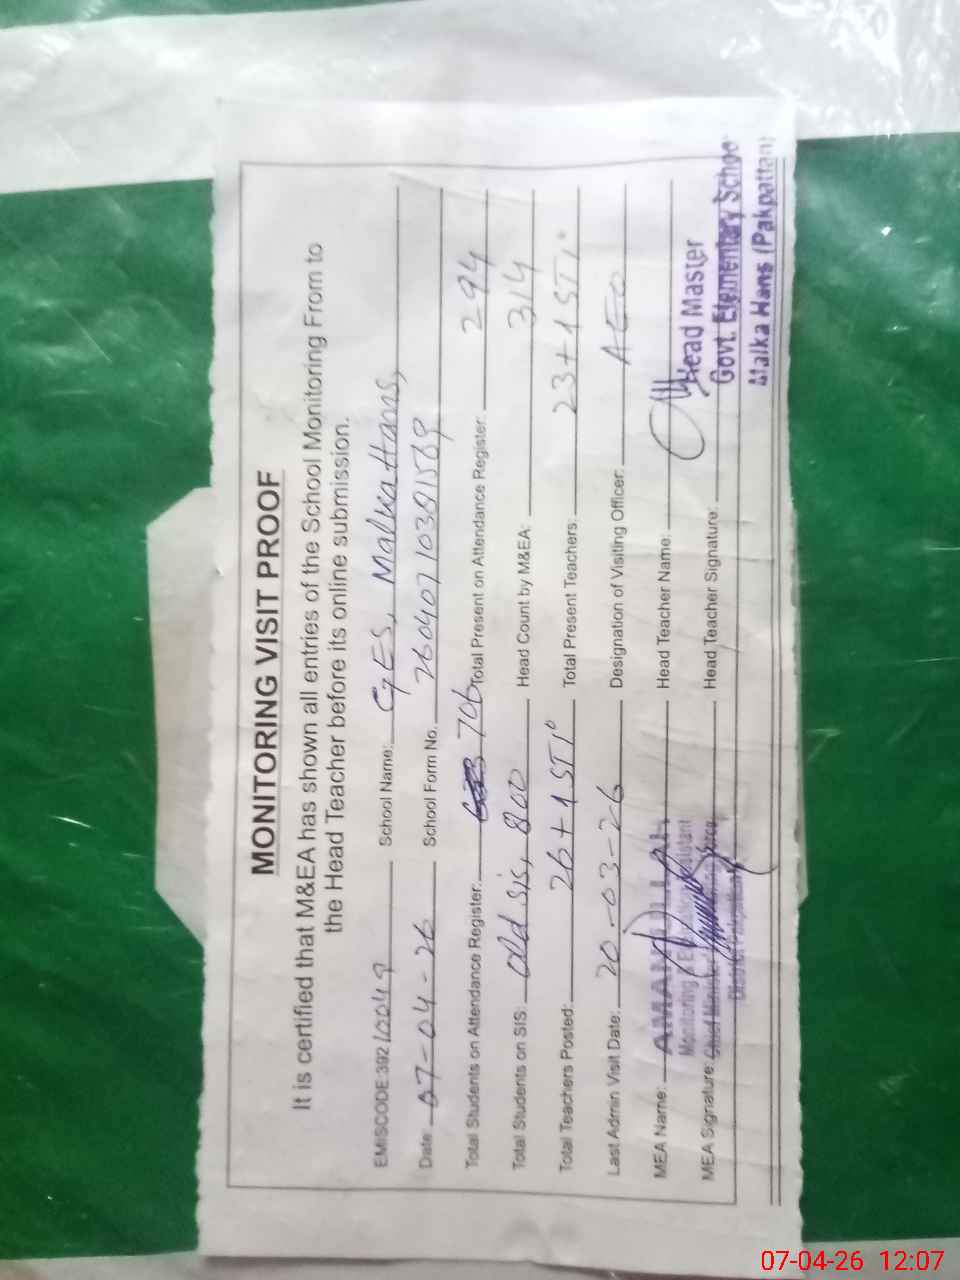 MONITORING VISIT PROOF
It is certified that M&EA has shown all entries of the School Monitoring From to
the Head Teacher before its online submission.
EMISCODE:392 10049 School Name: GES, Malka Hans,
Date: 07-04-26 School Form No. 26040710391589
Total Students on Attendance Register: 706 Total Present on Attendance Register: 294
Total Students on SIS: old sis, 800 Head Count by M&EA: 314
Total Teachers Posted: 26+1 STI Total Present Teachers: 23+1 STI
Last Admin Visit Date: 20-03-26 Designation of Visiting Officer: AEO
MEA Name: AMAN Head Teacher Name:
Monitoring
MEA Signature: Chief Head Teacher Signature:
Head Master
Govt. Elementary School
Malka Hans (Pakpattan)
07-04-26 12:07